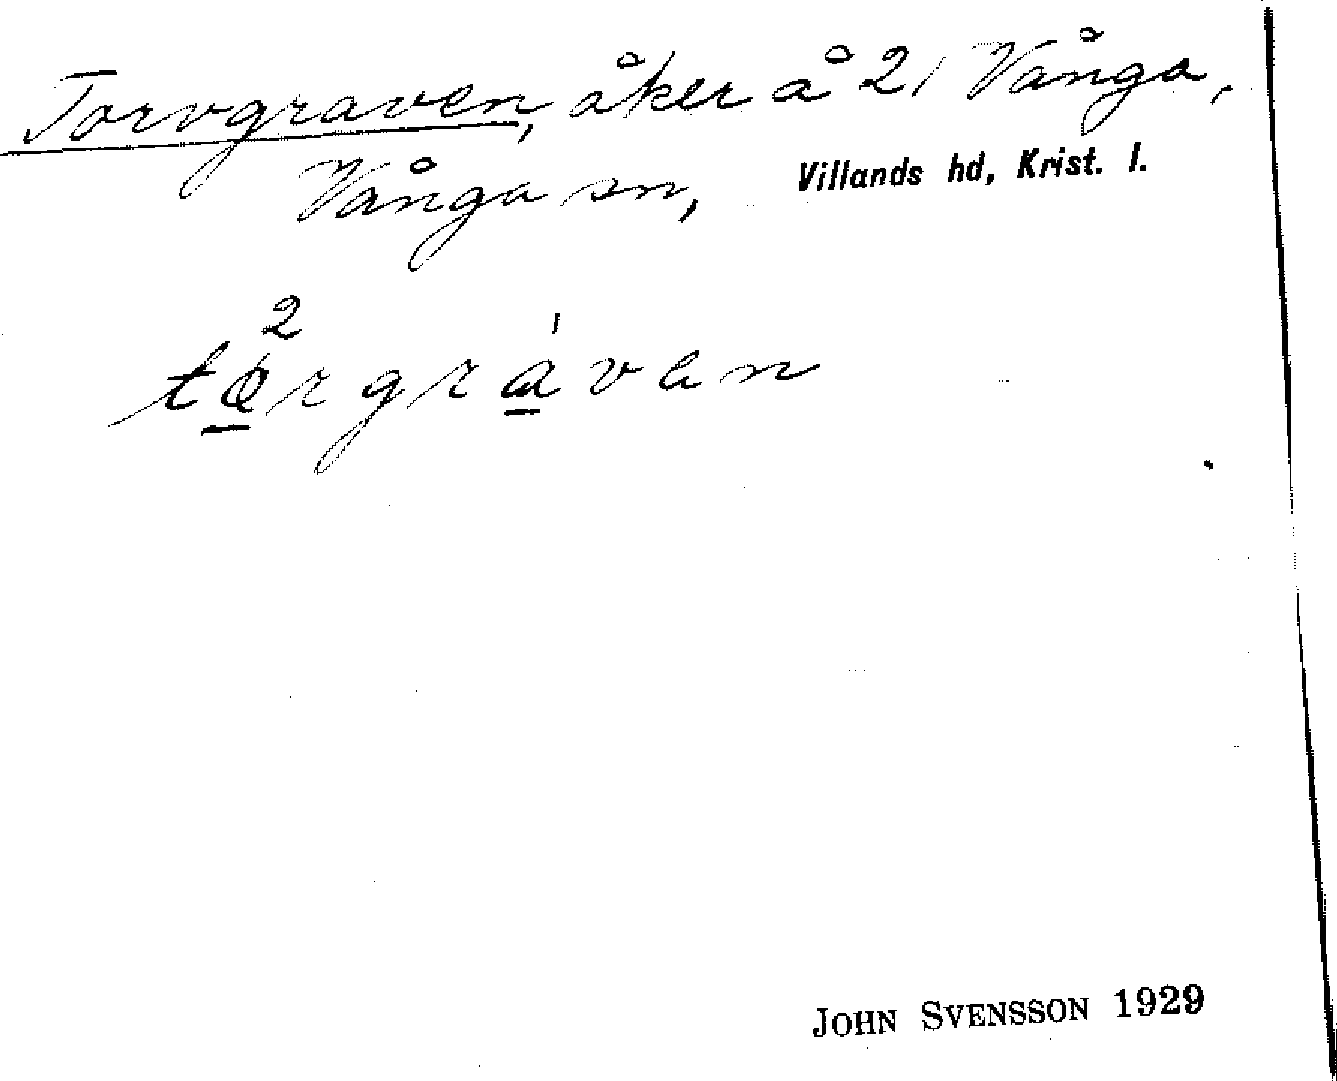 Torvgraven, åker å 21 Vånga,
Vånga sn, Villands hd, Krist. l.
JOHN SVENSSON 1929